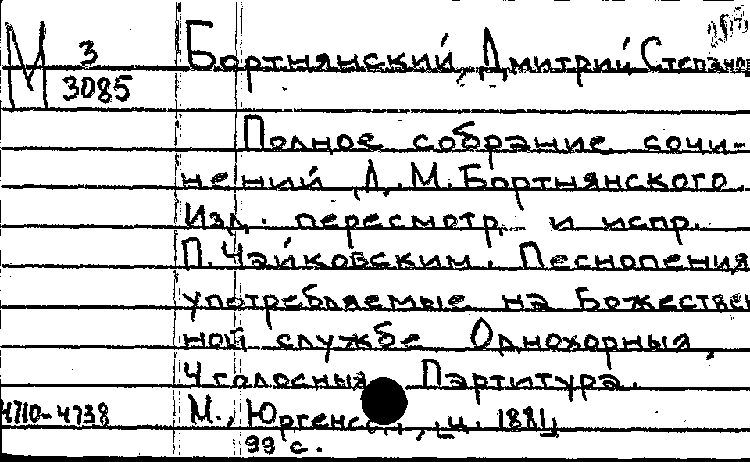 М 3
3085
Бортнянский, Дмитрий Степано
Полное собрание сочи-
нений Д. М. Бортнянского.
Изд. пересмотр. и испр.
П. Чайковским. Песнопения
употребляемые на Божествен
ной службе Однохорныя,
4 голосныя Партитура.
4710-4738
М., Юргенсон, ц. 1881
99 с.